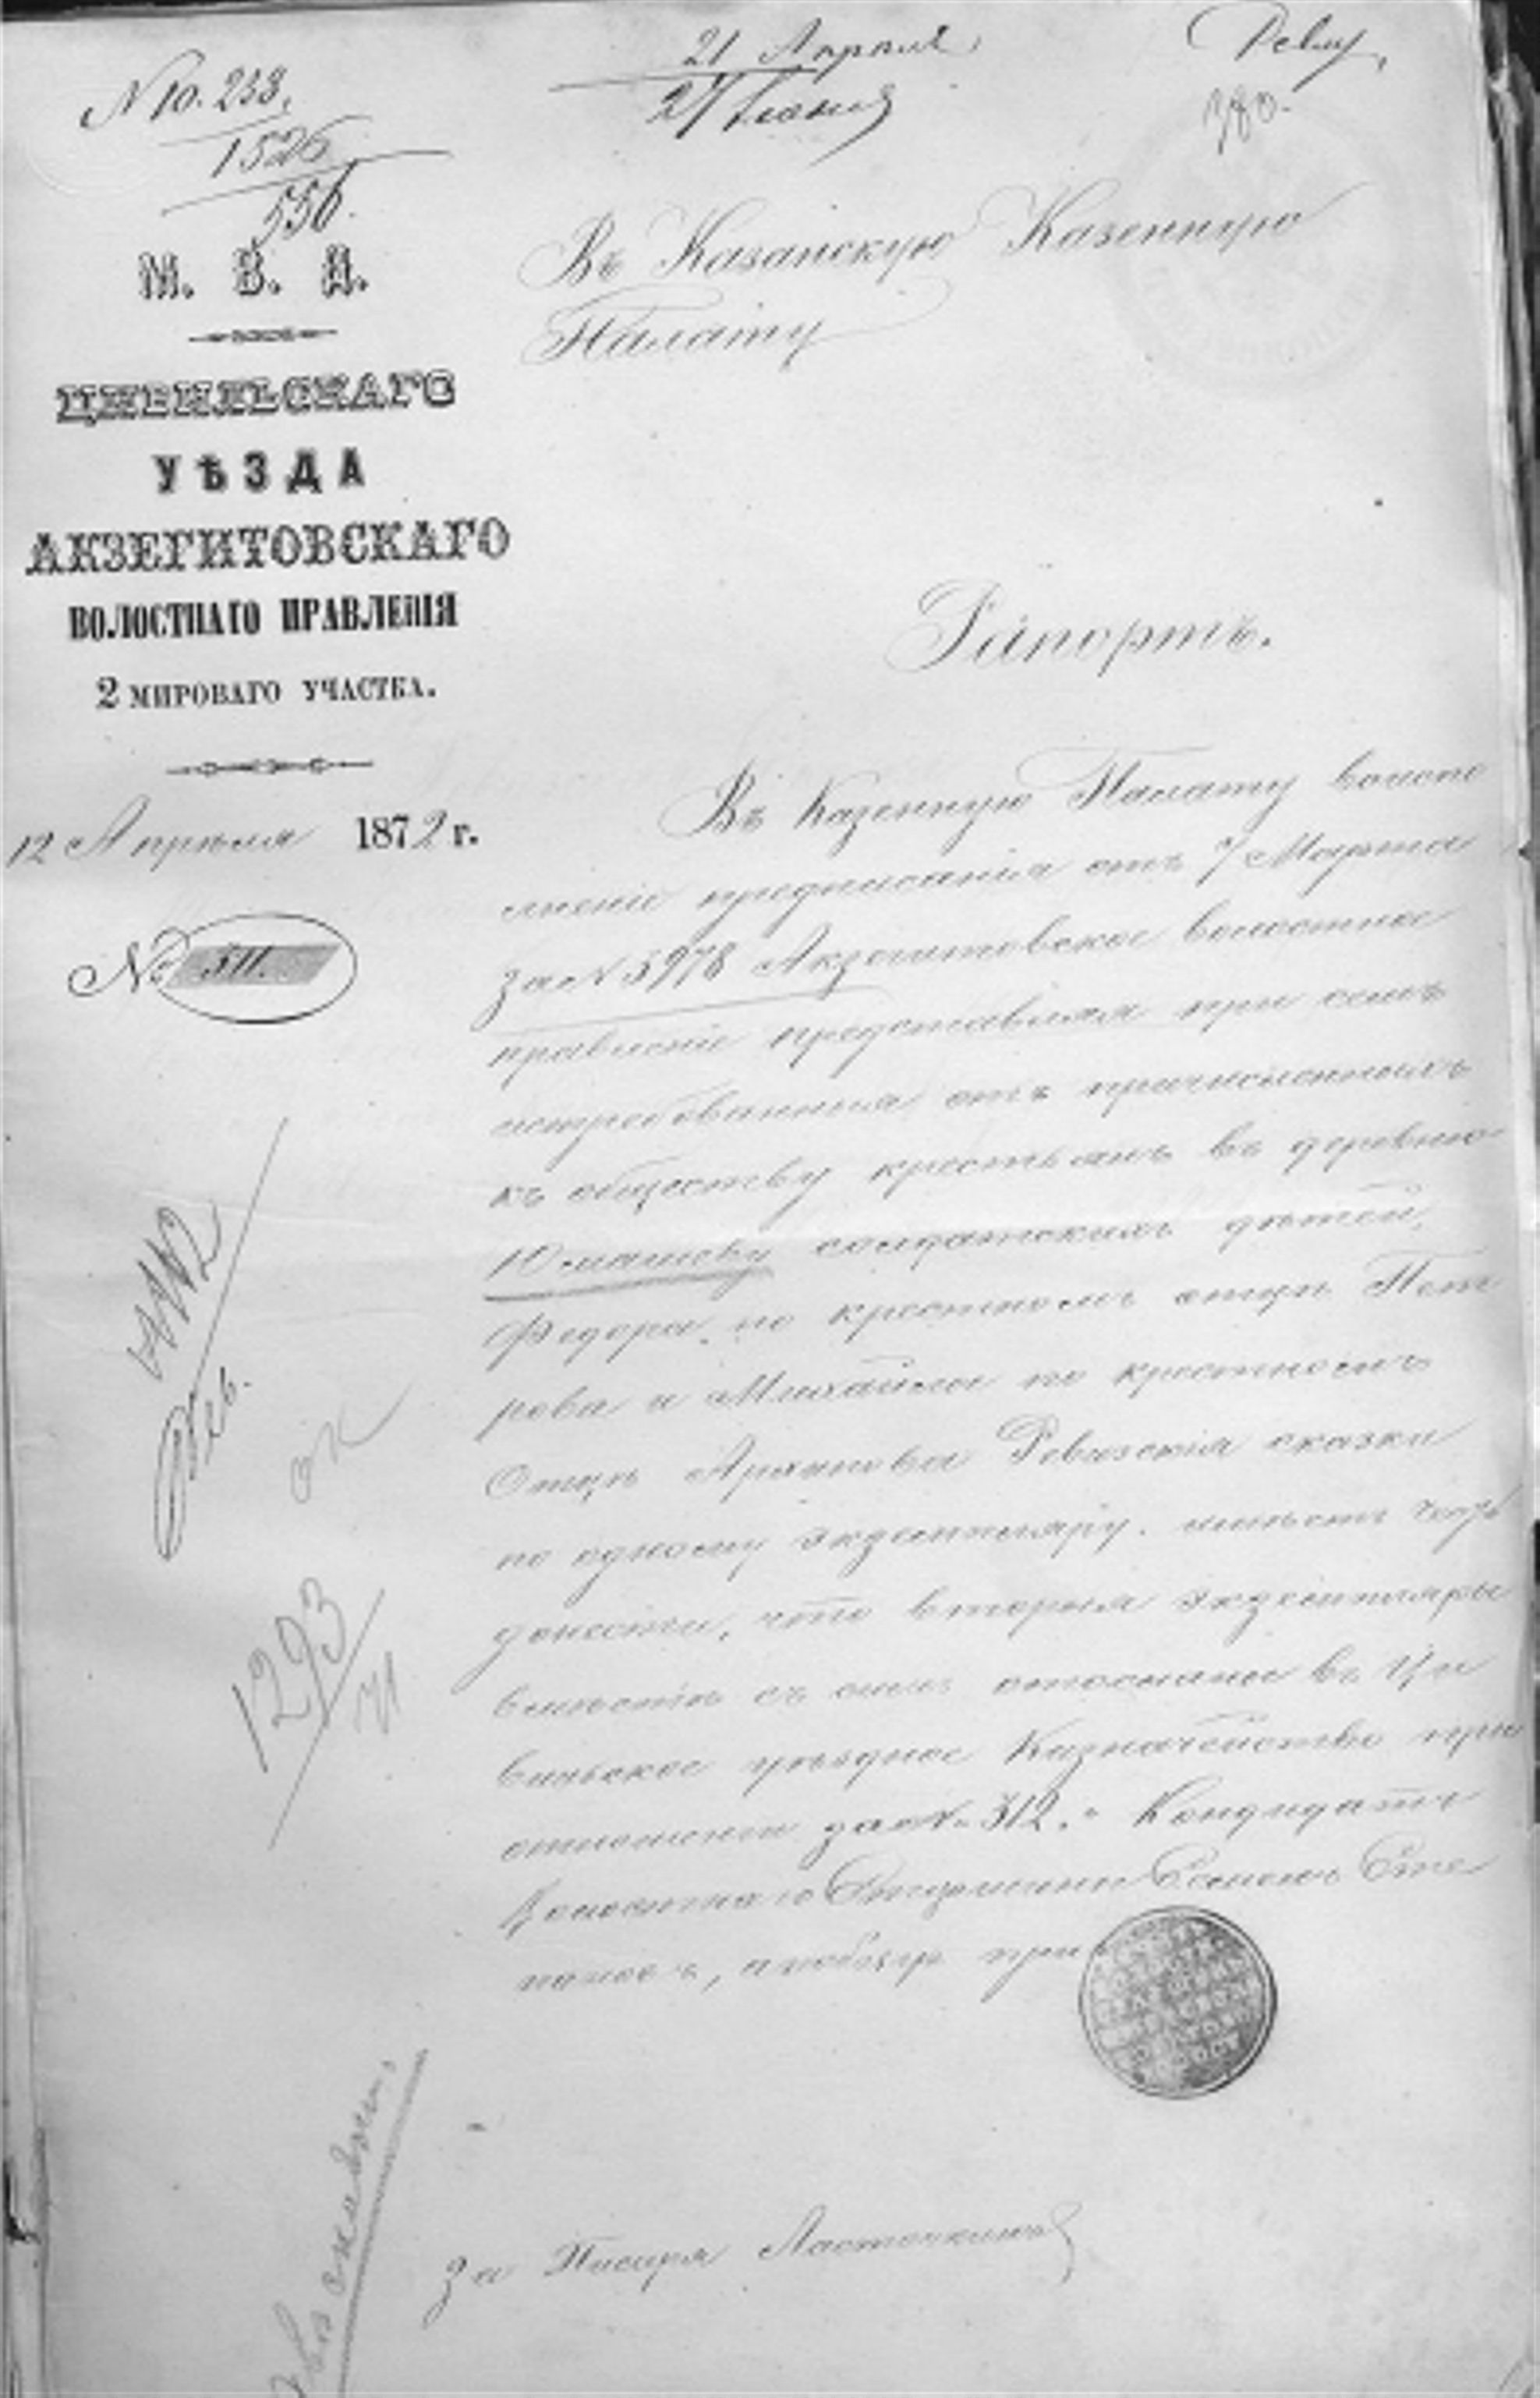 N 10.233.
1526
556.
21 Апреля
27 Июня
380.
М. В. Д.
ЦИВИЛЬСКАГО
УѢЗДА
АКЗЕГИТОВСКАГО
ВОЛОСТНАГО ПРАВЛЕНІЯ
2 МИРОВАГО УЧАСТКА.
12 Апрѣля 1872 г.
№ 511.
Въ Казанскую Казенную
Палату
Рапортъ.
Въ Казенную Палату воиспо
лненіе предписанія отъ 7 Марта
за N 5978 Акзегитовское волостное
правленіе представляя при семъ
истребованныя отъ причисленныхъ
къ обществу крестьянъ въ деревню
Юмашеву солдатскихъ дѣтей,
Федора по крестномъ отцѣ Пет
рова и Михайла по крестномъ
Отцѣ Архипова Ревизскія сказки
по одному экземпляру. имѣетъ честь
донести, что вторыя экземпляры
вмѣстѣ съ симъ отосланы въ Ци
вильское уѣздное Казначейство при
отношеніи за № 312. Кандидатъ
Волостнаго Старшины Семенъ Сте
пановъ, а
1293
71
За Писаря Ласточкинъ